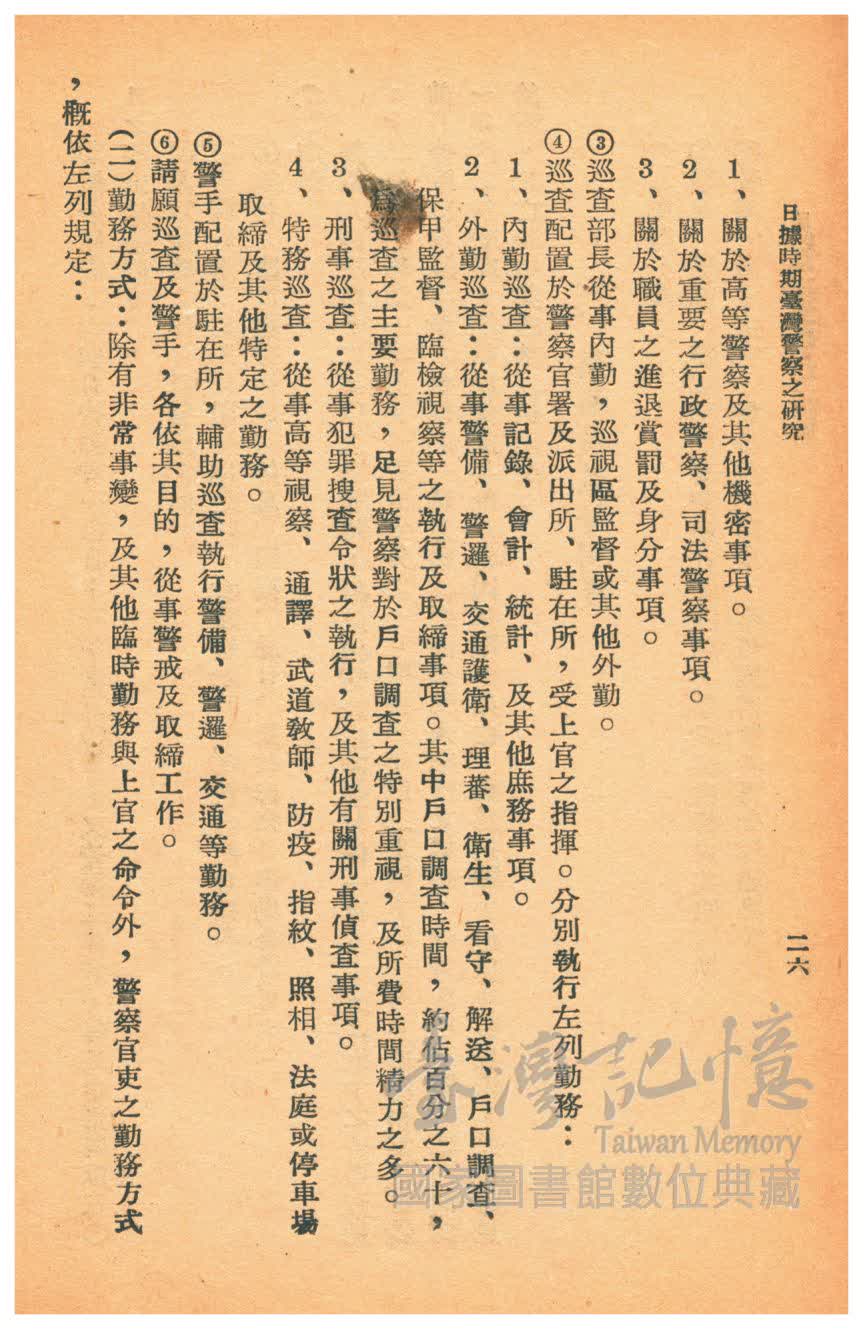 日據時期臺灣警察之研究
二六
1、關於高等警察及其他機密事項。
2、關於重要之行政警察、司法警察事項。
3、關於職員之進退賞罰及身分事項。
③巡查部長從事內勤，巡視區監督或其他外勤。
④巡查配置於警察官署及派出所、駐在所，受上官之指揮。分別執行左列勤務：
1、內勤巡查：從事記錄、會計、統計、及其他庶務事項。
2、外勤巡查：從事警備、警邏、交通護衛、理蕃、衛生、看守、解送、戶口調查、
保甲監督、臨檢視察等之執行及取締事項。其中戶口調查時間，約佔百分之六十，
爲巡查之主要勤務，足見警察對於戶口調查之特別重視，及所費時間精力之多。
3、刑事巡查：從事犯罪搜查令狀之執行，及其他有關刑事偵查事項。
4、特務巡查：從事高等視察、通譯、武道教師、防疫、指紋、照相、法庭或停車場
取締及其他特定之勤務。
⑤警手配置於駐在所，輔助巡查執行警備、警邏、交通等勤務。
⑥請願巡查及警手，各依其目的，從事警戒及取締工作。
(二)勤務方式：除有非常事變，及其他臨時勤務與上官之命令外，警察官吏之勤務方式
，概依左列規定：
臺灣記憶
Taiwan Memory
國家圖書館數位典藏